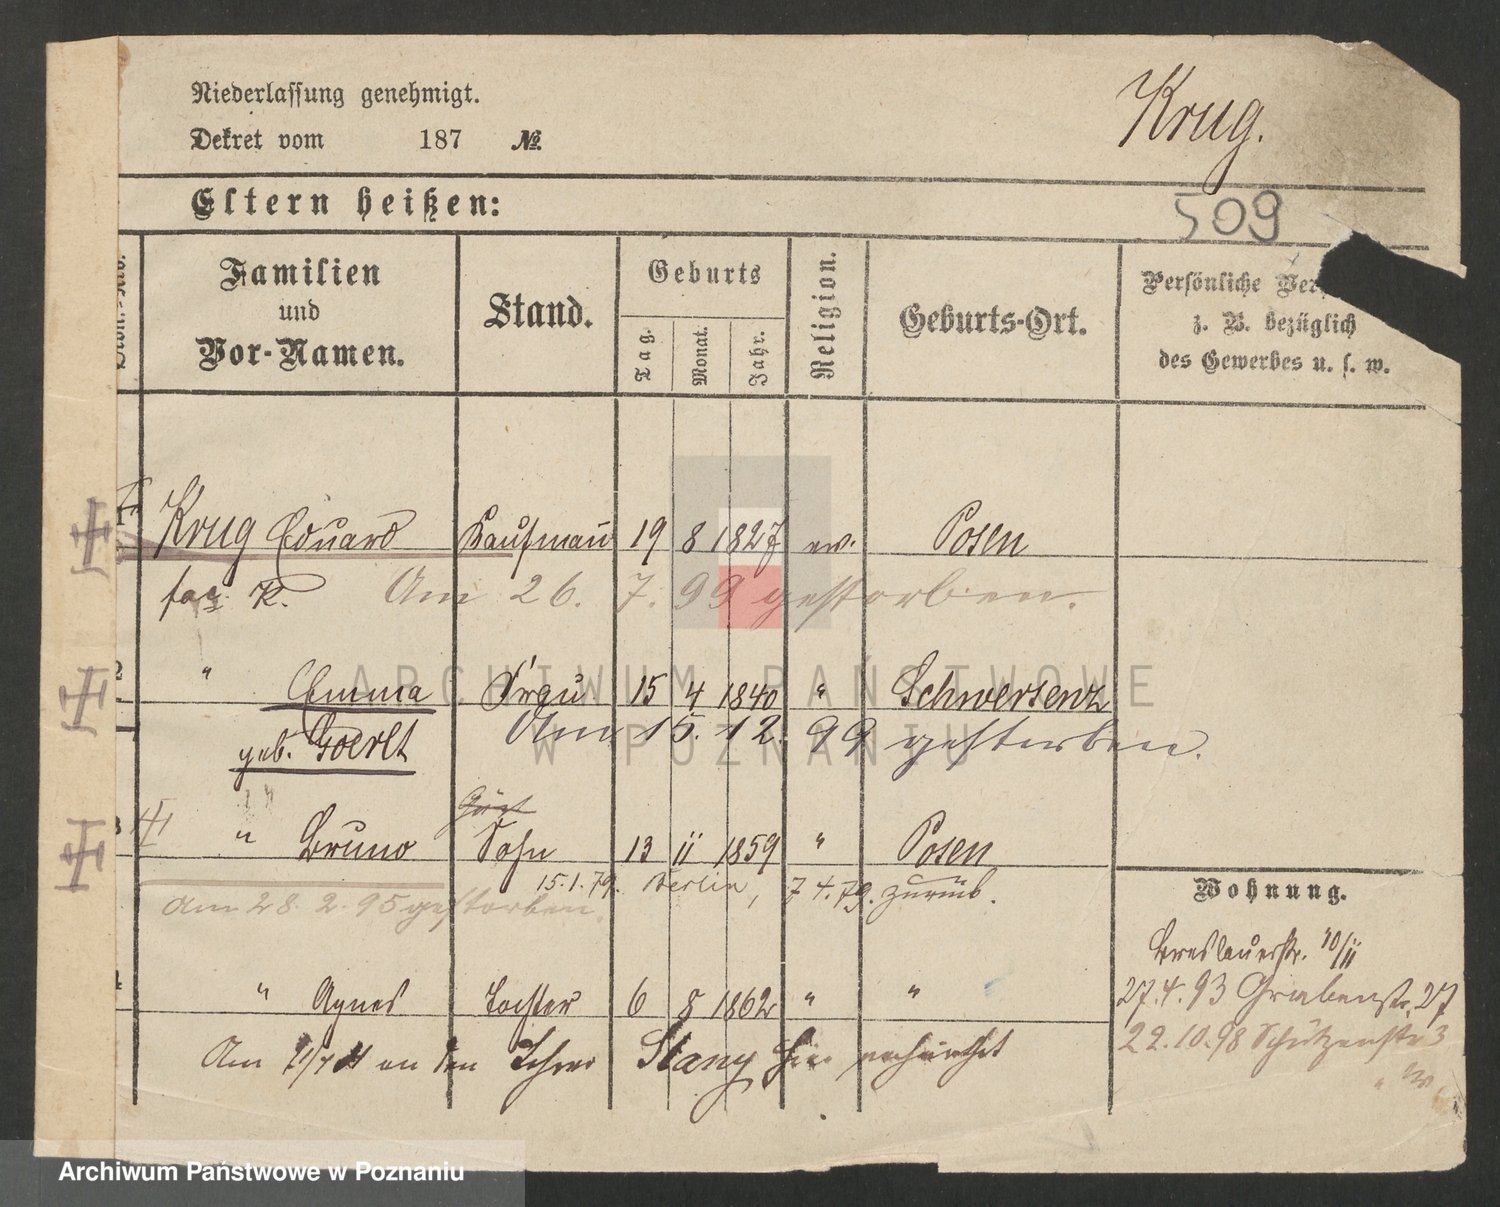 Niederlassung genehmigt.
Krug.
Dekret vom 187 №.
Eltern heißen:
509
Familien und Vor-Namen.
Stand.
Geburts
Tag.
Monat.
Jahr.
Religion.
Geburts-Ort.
Persönliche
z. B. bezüglich
des Gewerbes u. s. w.
Krug Eduard Kaufmann 19 8 1827 ev. Posen
K. Am 26. 7. 99 gestorben.
2 " Emma Frau 15 4 1840 " Schwersenz
geb. Goerlt Am 15. 12. 99 gestorben.
3 " Bruno Sohn 13 11 1859 " Posen
15.1.79. Berlin, 7 4.79. zurück.
Am 28. 2. 95 gestorben.
Wohnung.
Breslauerstr. 40/II
27.4.93 Grabenstr. 27
22.10.98 Schützenstr 3
4 " Agnes Tochter 6 8 1862 " "
Am an den Lehrer Stany hier verheirathet
ARCHIWUM PAŃSTWOWE
W POZNANIU
Archiwum Państwowe w Poznaniu